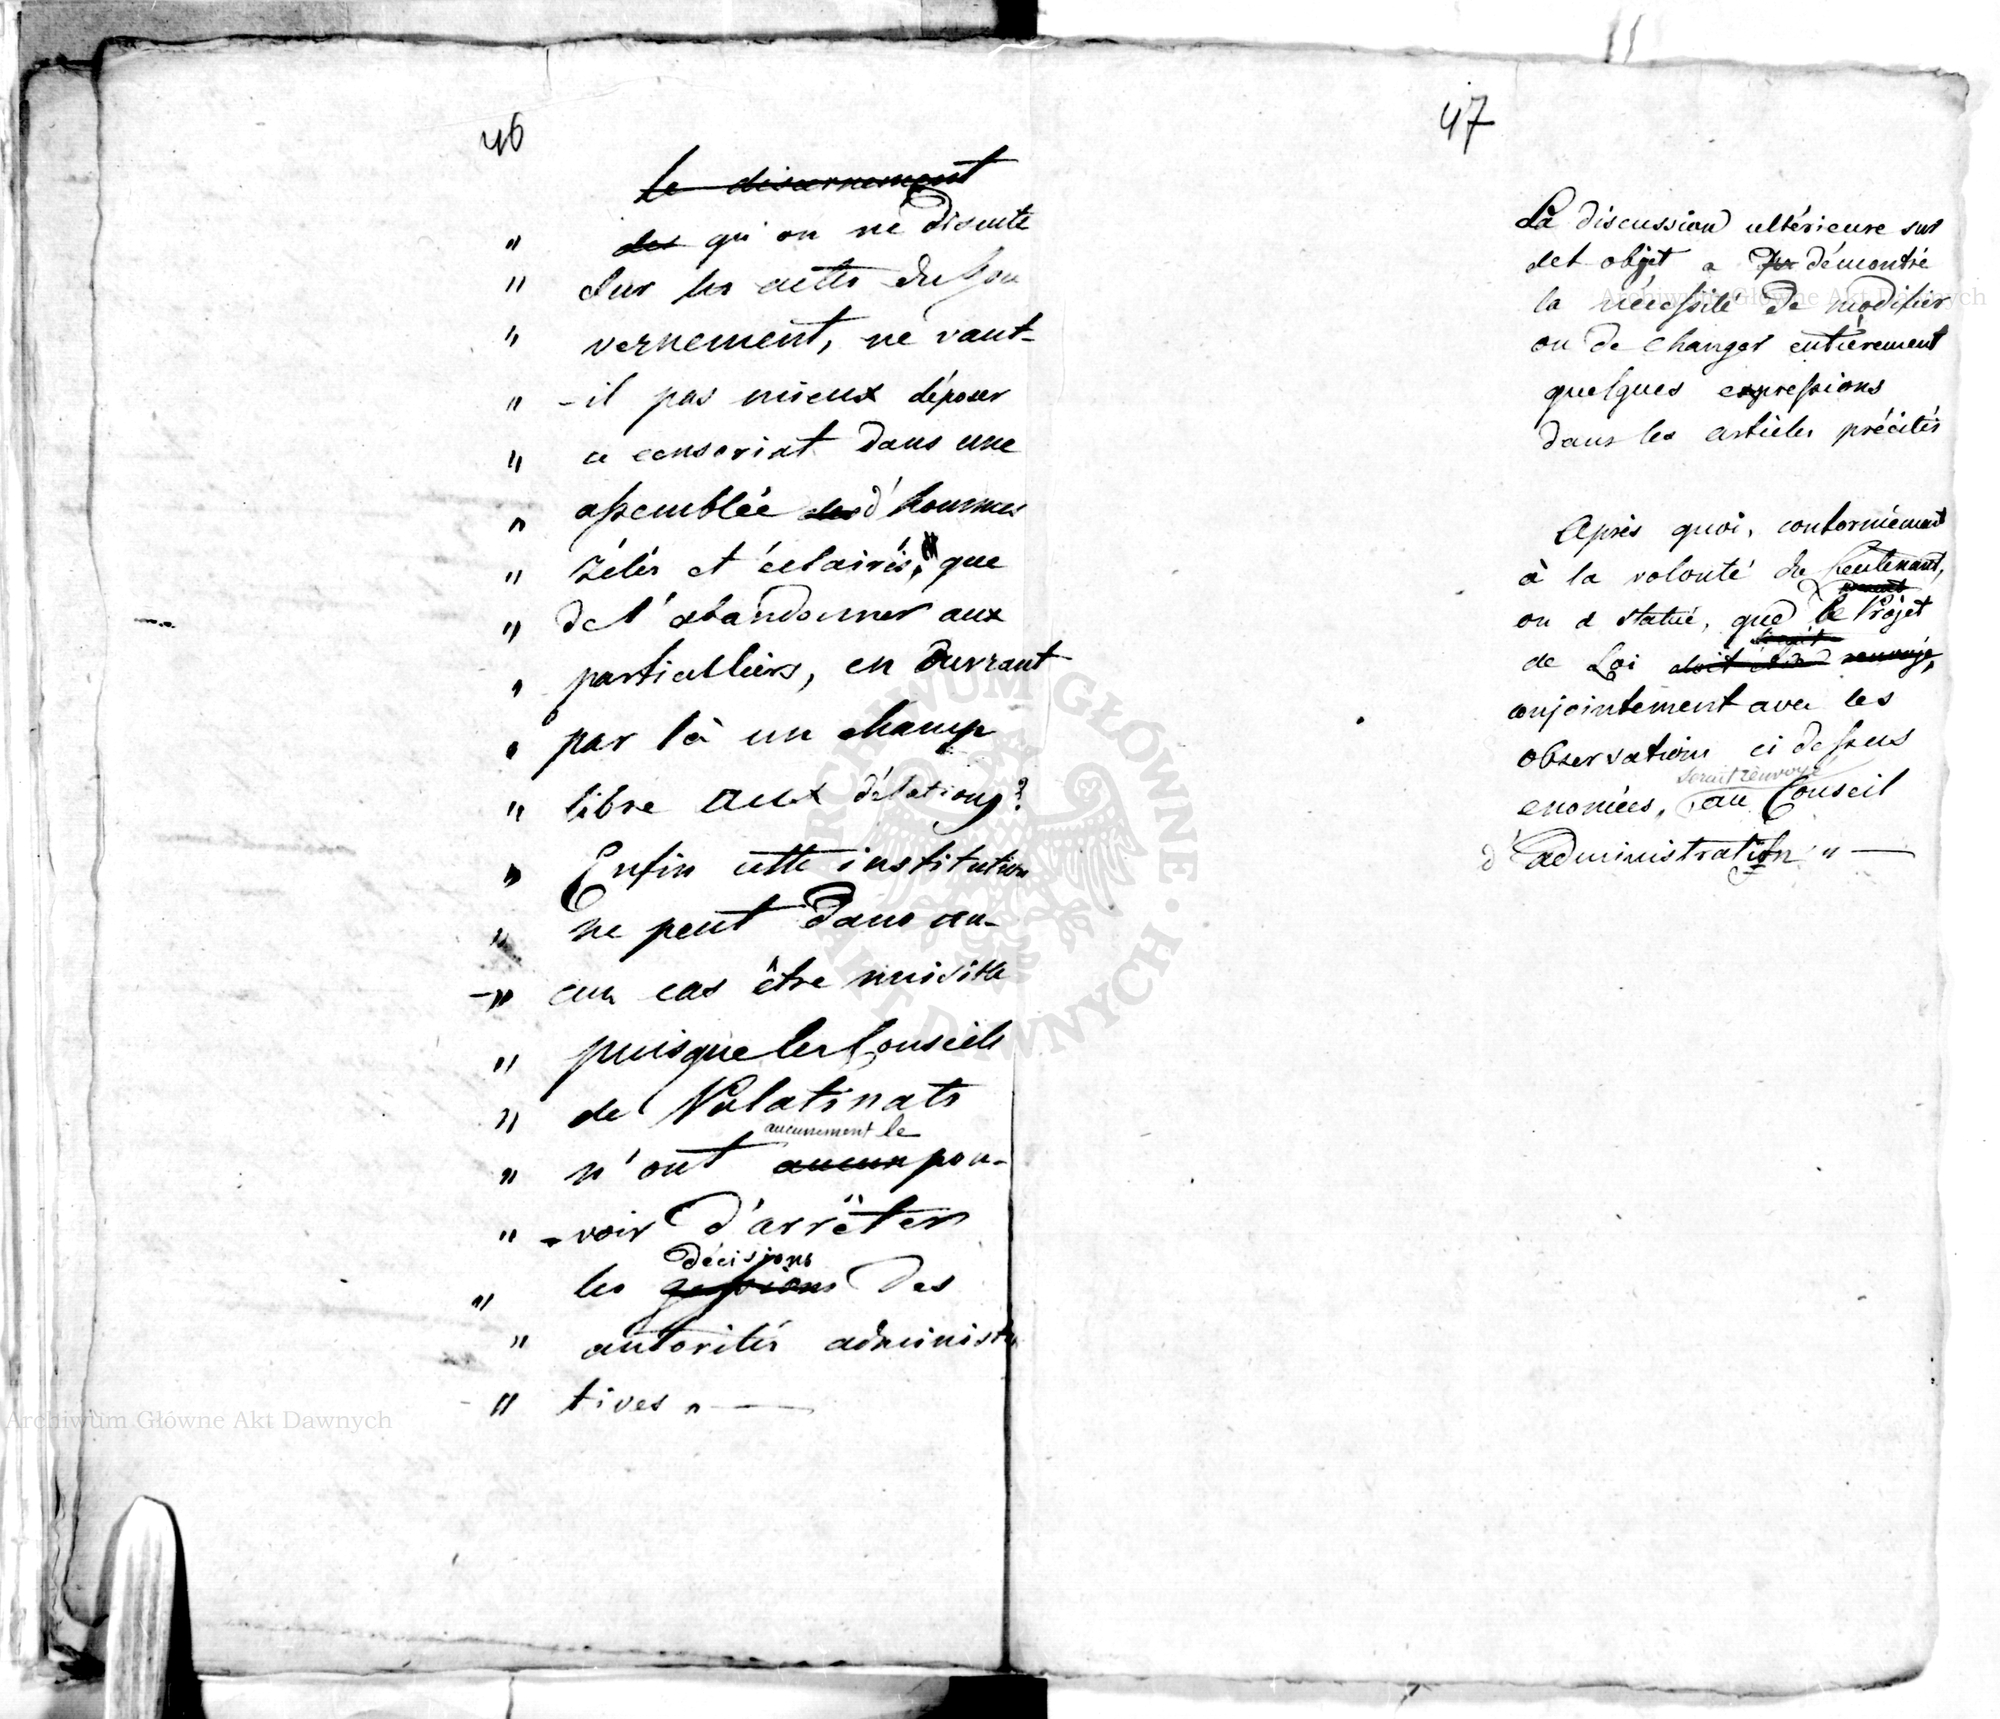 46
le discernement
" des qu'on ne discute
" Sur les actes du Gou
" vernement, ne vaut-
" -il pas mieux déposer
" ce censoriat dans une
" assemblée des d'hommes
" zélés et éclairés, que
" de l'abandonner aux
" particulliers, en ouvrant
" par là un champ
" libre aux délations?
" Enfin cette institution
" ne peut dans au-
" cun cas être nuisible
" puisque les Conseils
" de Palatinats
aucunement le
" n'ont aucun pou-
" -voir d'arrêter
décisions
" les des
" autorités administra
" tives " —
47
La discussion ultérieure sur
cet objet a démontré
la nécessité de modifier
ou de changer entièrement
quelques expressions
dans les articles précités
Après quoi, conformément
à la volonté du Lieutenant,
on a statué, que le Projet
de Loi doit être renvoyé,
conjointement avec les
observations ci dessus
serait renvoyé
enoncées, au Conseil
d'administration " —
ARCHIWUM GŁÓWNE AKT DAWNYCH
Archiwum Główne Akt Dawnych
Archiwum Główne Akt Dawnych